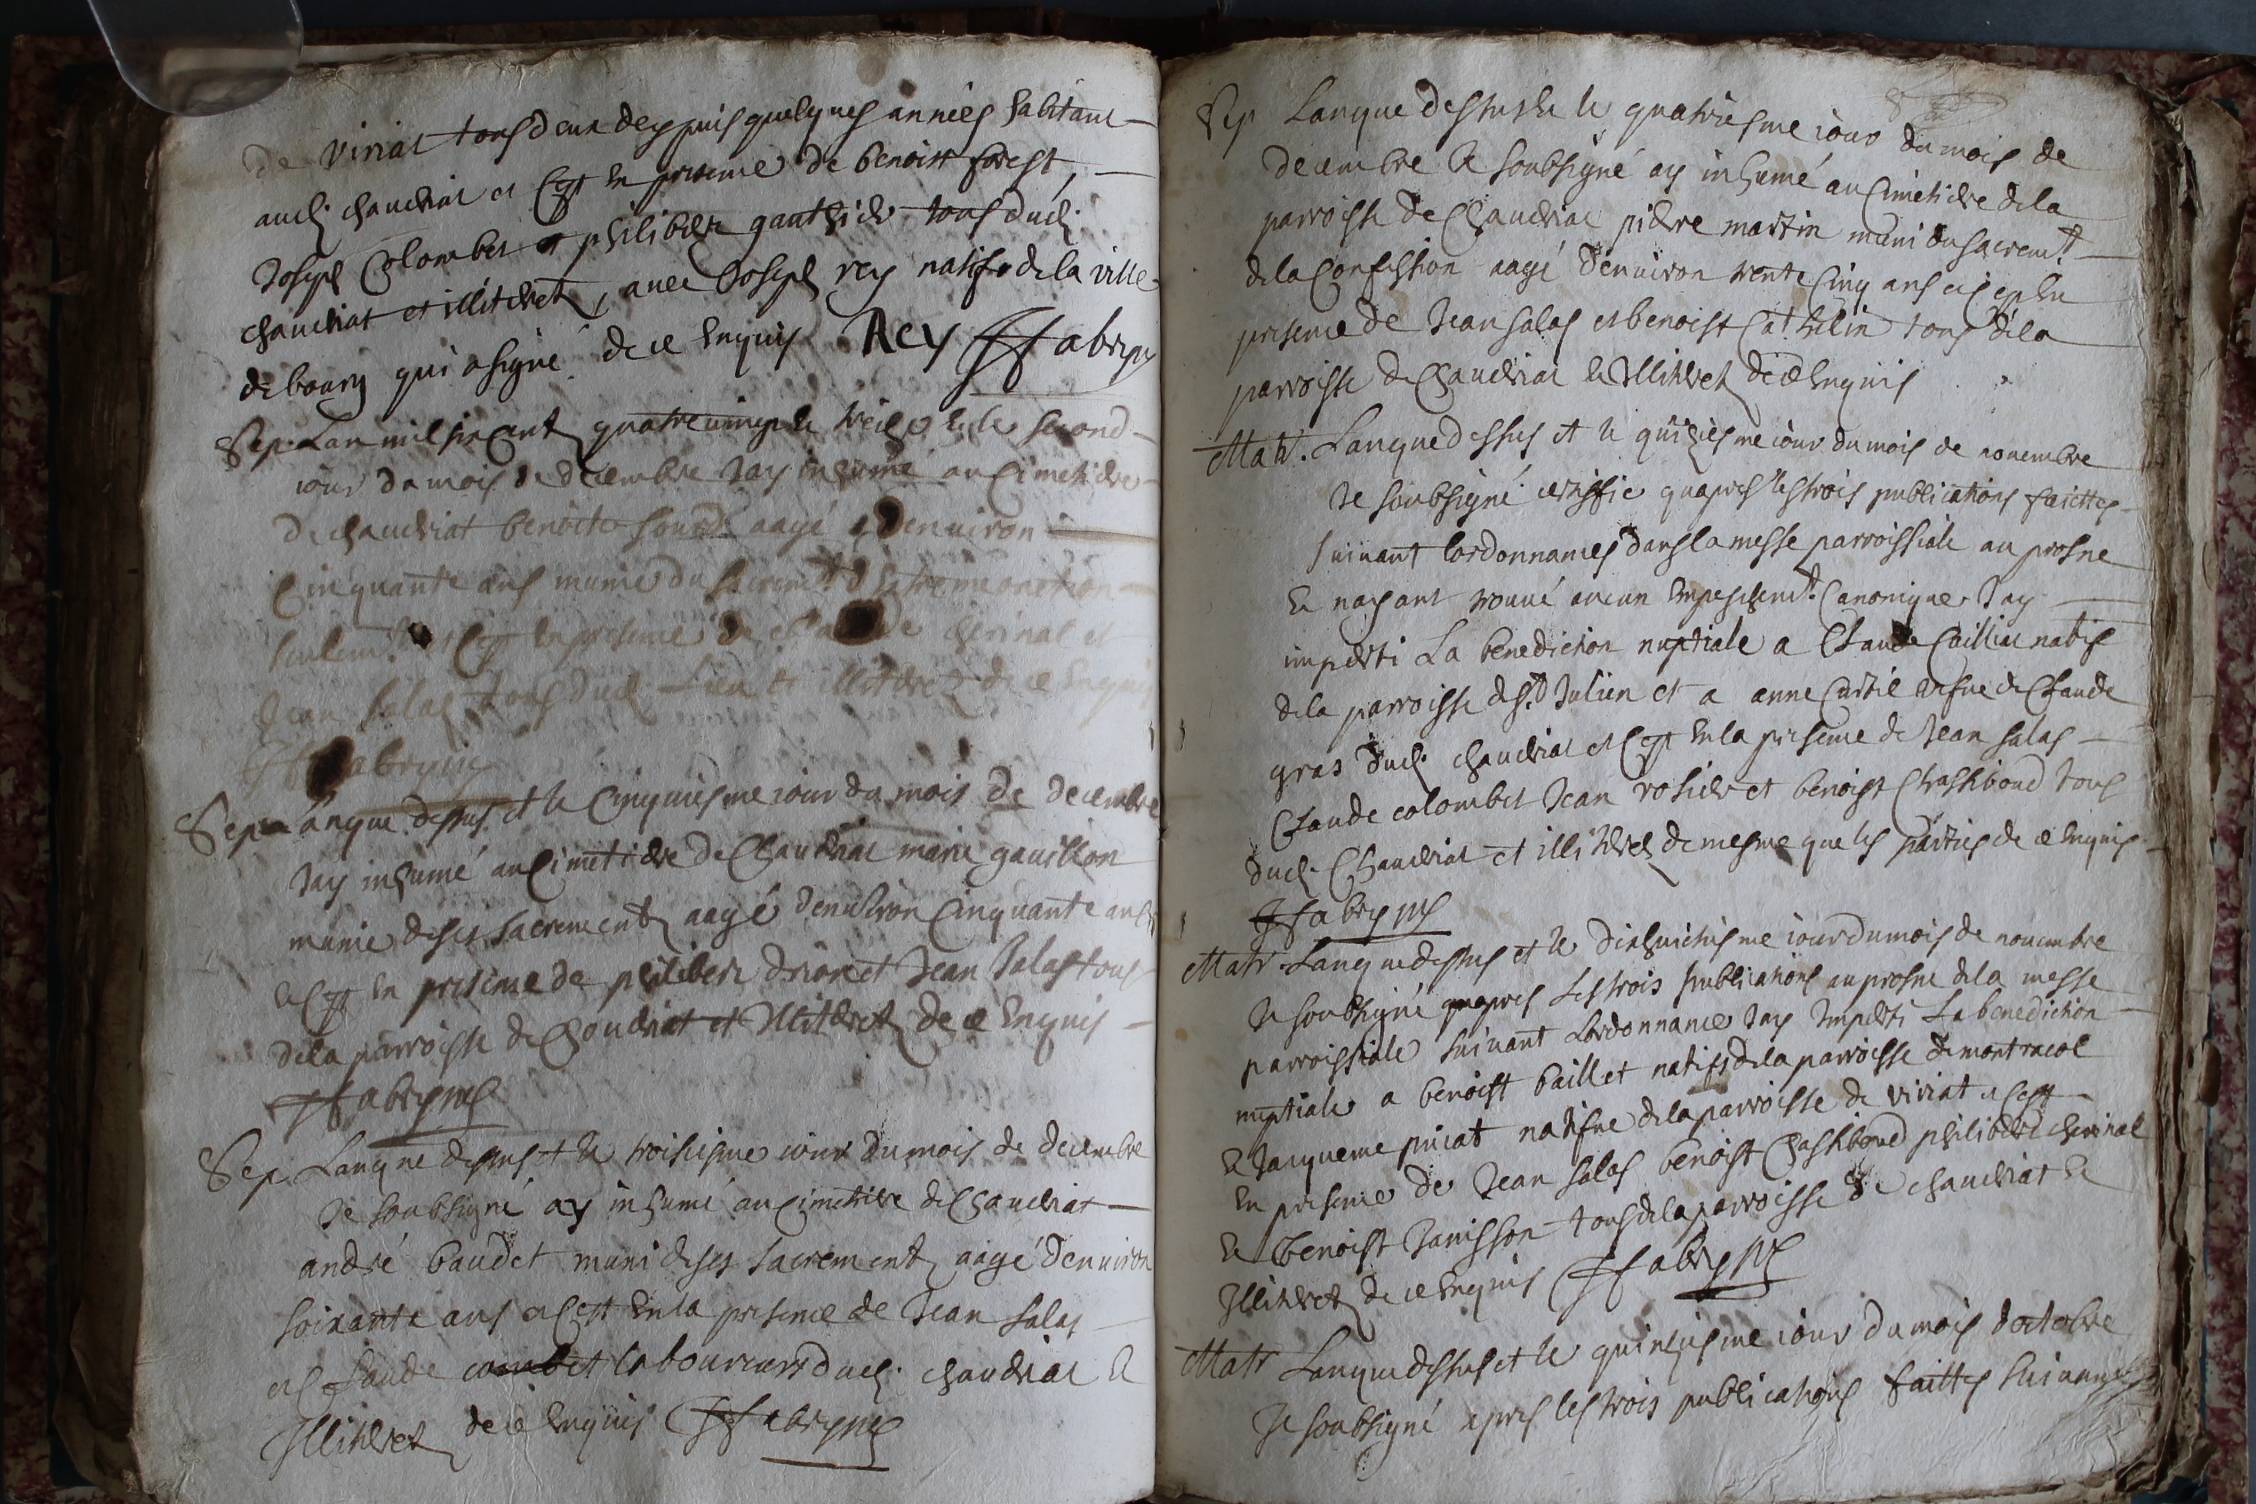 de viriat tous deux despuis quelques années habitant
aud. chaudriat et c'est en presence de benoist forest,
Joseph Colombet et philibert gauthier tous dud.
chaudriat et illiterez, avec Joseph rey natif de la ville
de bourg qui a signé de ce enquis Rey
Sep. Lan mil six cent quatre vingt et treize et le second
iour du mois de decembre Jay inhumé au Cimetiere
de chaudriat benoite aagé denuiron
Cinquante ans munie du sacremt dextreme onction
seulemt et cest en presence de claude cherinal et
Jean Salas tous dud. lieu et illiterez de ce enquis
Sep. Lanque dessus et le Cinquiesme iour du mois de decembre
Jay inhumé au Cimetiere de Chaudriat marie gauillon
munie de ses sacrements aagé denuiron Cinquante ans
et cest en presence de philibert et Jean Salas tous
de la parroisse de Chaudriat et Illiterez de ce enquis
Sep. Lanque dessus et le troisiesme iour du mois de decembre
Je soubsigné ay inhumé au Cimetiere de Chaudriat
andré baudet muni de ses sacrements aagé denuiron
soixante ans et cest en la presence de Jean Salas
et Claude laboureurs dud. chaudriat et
Illiterez de ce enquis
Sep Lanque dessus et le quatriesme iour du mois de
decembre Je soubsigné ay inhumé au Cimetiere de la
parroisse de Chaudriat pierre martin muni du sacremt
de la Confession aagé denuiron trente Cinq ans et cest en
presence de Jean Salas et benoist Cathelin tous de la
parroisse de Chaudriat et Illiterez de ce enquis
Matr. Lanque dessus et le quisiesme iour du mois de nouembre
Je soubsigné certiffie quapres les trois publications faittes
suiuant lordonnances dans la messe parroissiale au prosne
et nayant trouué aucun Empeschemt. Canonique Jay
imparti La benediction nuptiale a Claude Caillat natif
de la parroisse de St Julien et a anne vefue de Claude
gras dud. chaudriat et cest en la presence de Jean Salas
Claude colombet Jean rosier et benoist tous
dud. Chaudriat et illiterez de mesme que les parties de ce enquis
Matr Lanque dessus et le dixhuictiesme iour du mois de nouembre
Je soubsigné quapres Les trois publications au prosne de la messe
parroissiale suiuant Lordonnance Jay Imparti La benediction
nuptiale a benoist baillet natif de la parroisse de montracol
et Jacqueme natifue de la parroisse de viriat et cest
en presence de Jean Salas benoist philibert cherinal
et Benoist Janisson tous de la parroisse de chaudriat et
Illiterez de ce enquis
Matr Lanque dessus et le quinziesme iour du mois doctobre
Je soubsigné apres les trois publications faittes suiuant